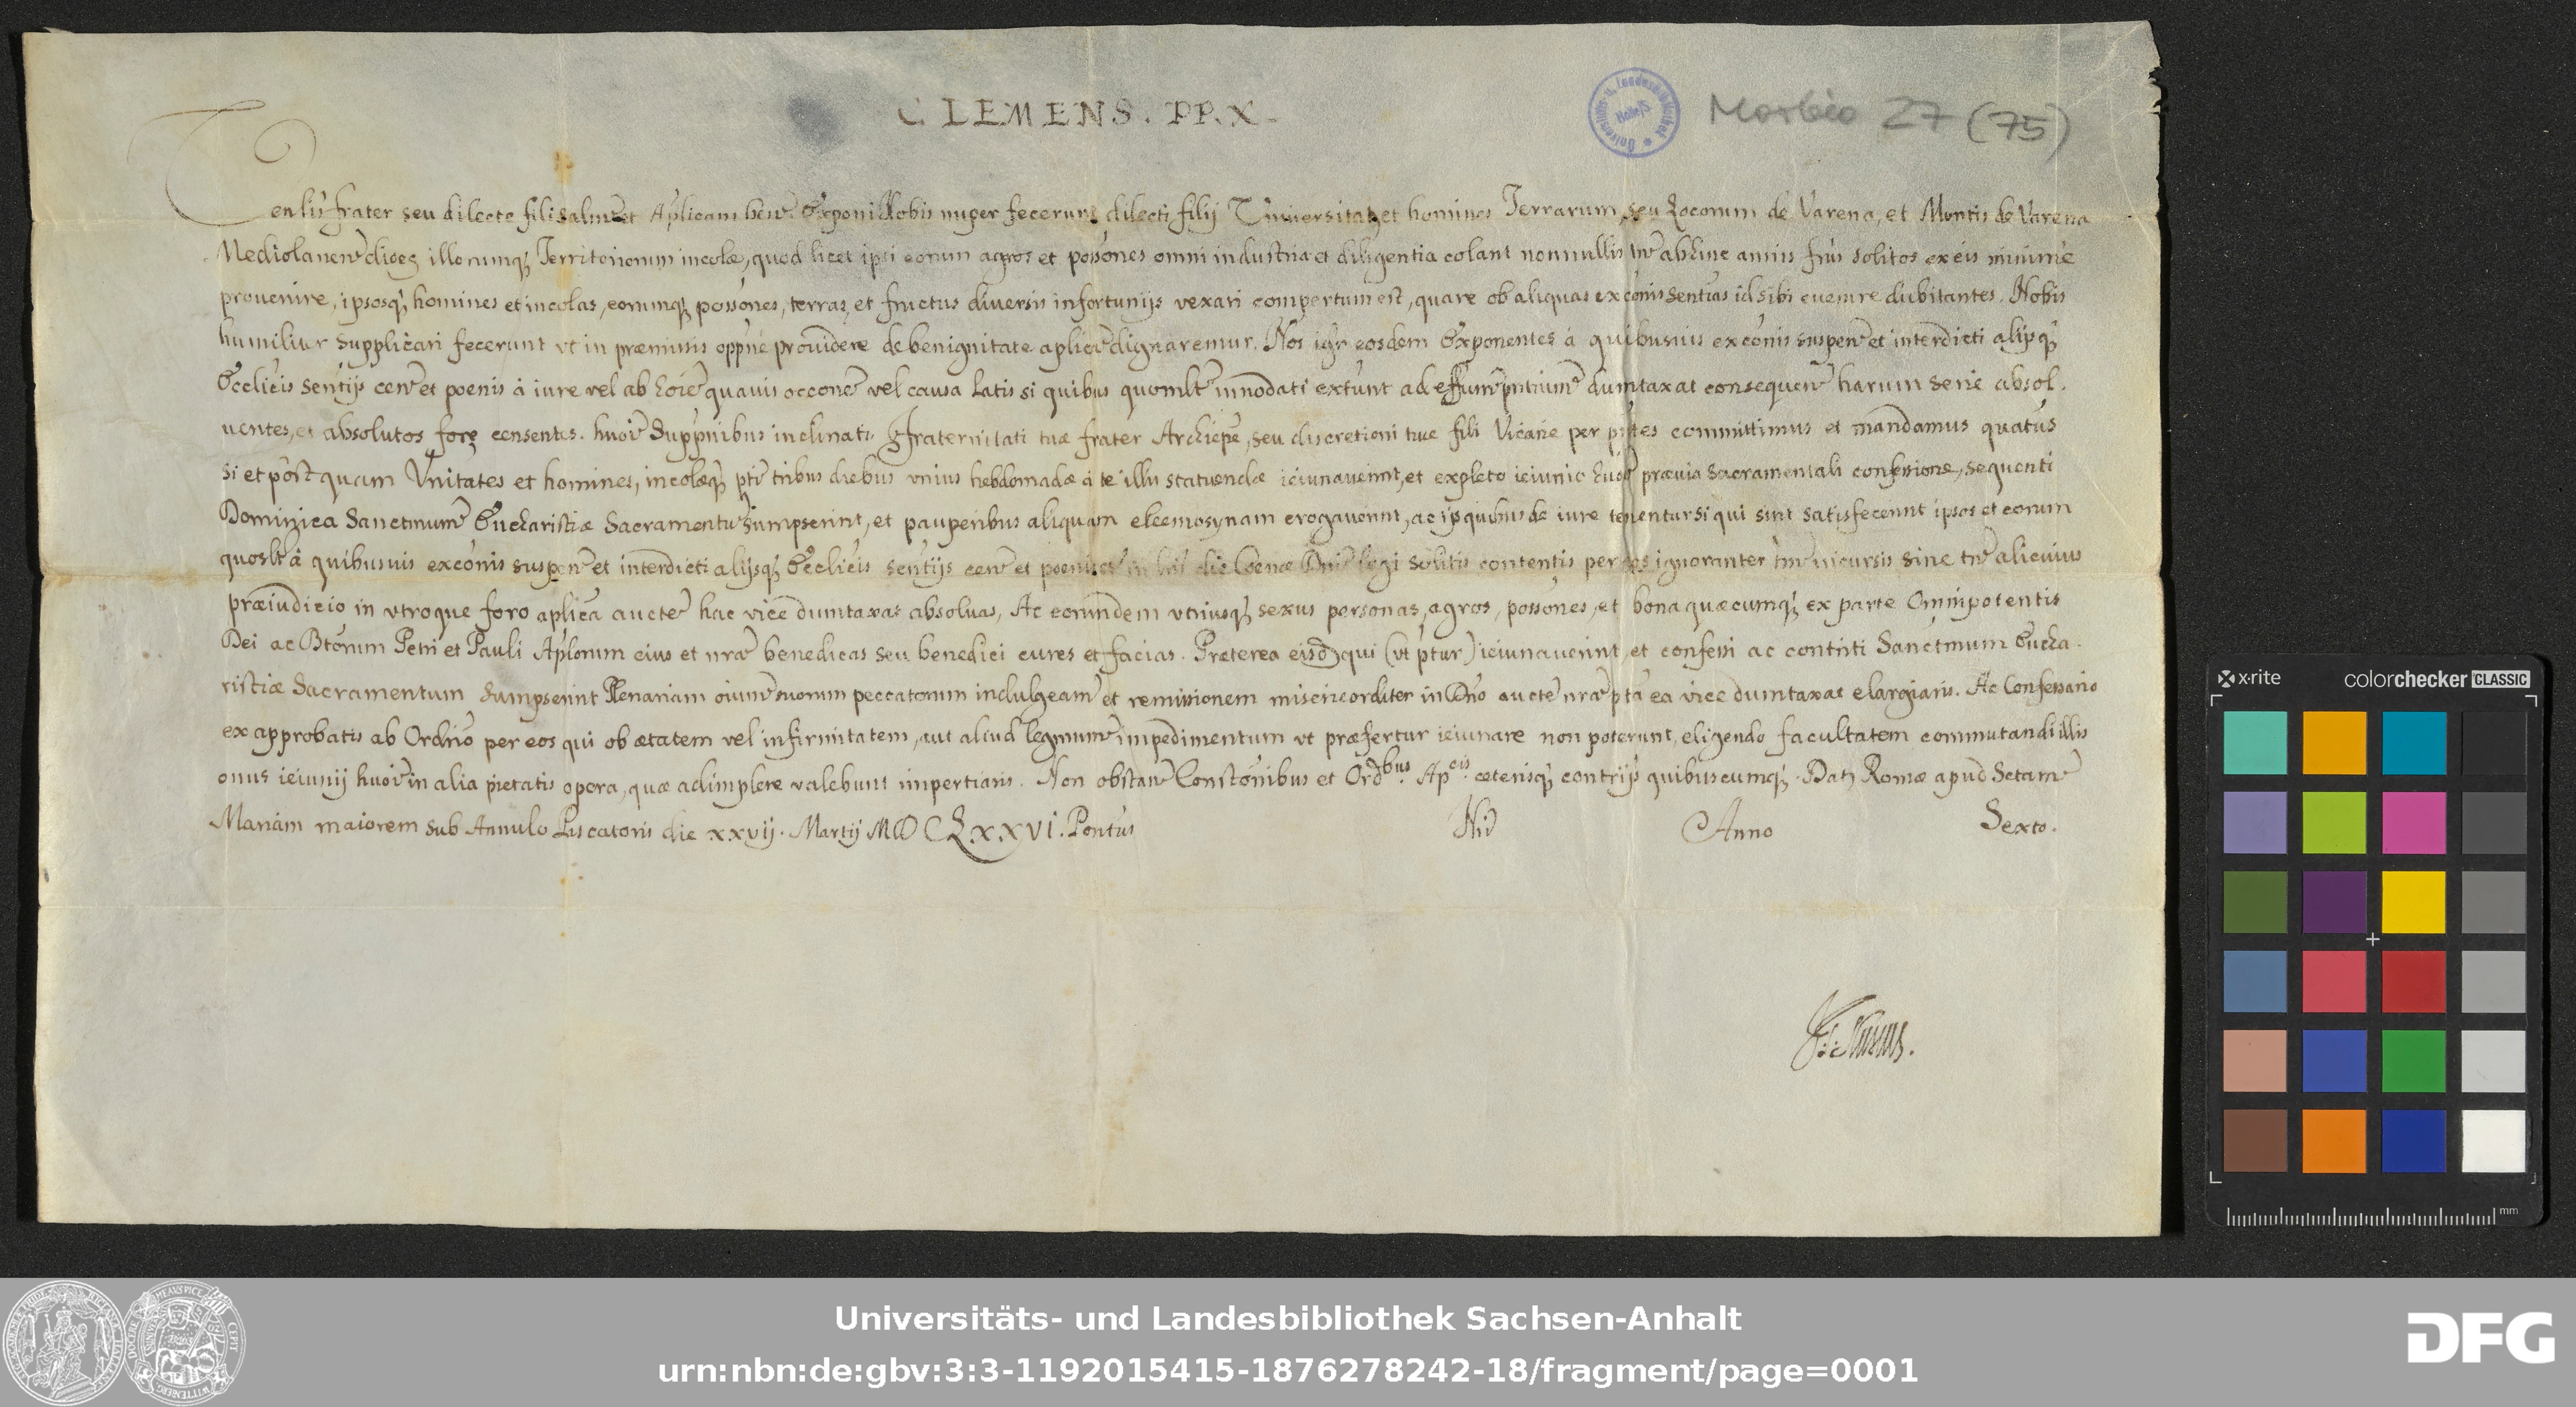 CLEMENS. PP. X.
Morbio 27 (75)
Venlis frater seu dilecte fili salutem et Aplicam ben. Exponi Nobis nuper fecerunt dilecti filij Universitates et homines Terrarum, seu Locorum de Varena, et Montis de Varena
Mediolanen dioeg illorumq; Territoriorum incolæ, quod licet ipsi eorum agros et possones omni industria et diligentia colant nonnullis tn abhinc annis frus solitos ex eis minime
prouenire, ipsosq; homines et incolas, eorumq; possones, terras, et fructus diversis infortunijs vexari compertum est, quare ob aliquas exconis sentias id sibi euenire dubitantes. Nobis
humiliter supplicari fecerunt vt in præmissis oppne prouidere de benignitate aplica dignaremur. Nos igr eosdem Exponentes à quibusuis exconis suspen et interdicti alijsq;
Ecclicis sentijs cen et poenis à iure vel ab hoie quauis occone vel causa latis si quibus quomlt innodati extunt ad effum pntium dumtaxat consequen harum serie absol.
uentes, et absolutos fore censentes. huoi suppnibus inclinati, fraternitati tuæ frater Archiepe, seu discretioni tuæ fili Vicarie per pntes committimus et mandamus quatus
si et postquam Vnitates et homines, incolæq; pti tribus diebus vnius hebdomadæ à te illis statuendæ ieiunauerint, et expleto ieiunio huoi præuia sacramentali confessione, sequenti
Dominica Sanctmum Eucharistiæ Sacramentu sumpserint, et pauperibus aliquam eleemosynam erogauerint, ac ijs quibus de iure tenentur si qui sint satisfecerint ipsos et eorum
quoslt à quibusuis exconis suspen et interdicti alijsq; Ecclicis sentijs cen et poenis et in lris die Coenæ Dni legi solitis contentis per eos ignoranter tm incursis sine tn alicuius
præiudicio in vtroque foro aplica aucte hac vice dumtaxat absoluas, Ac eorundem vtriusq; sexus personas, agros, possones, et bona quæcumq; ex parte Omnipotentis
Dei ac Btorum Petri et Pauli Aplorum eius et nra benedicas seu benedici cures et facias. Præterea eisd qui (vt ptur) ieiunauerint et confessi ac contriti Sanctmum Eucha.
ristiæ Sacramentum sumpserint Plenariam oium suorum peccatorum indulgeam et remissionem misericorditer in Dno aucte nra pta ea vice dumtaxat elargiaris. Ac Confessario
ex approbatis ab Ordrio per eos qui ob ætatem vel infirmitatem, aut aliud legmum impedimentum vt præfertur ieiunare non poterunt, eligendo facultatem commutandi illis
onus ieiunij huoi in alia pietatis opera, quæ adimplere valebunt impertiaris. Non obstan Constonibus et Ordbus Apcis cæterisq; contrijs quibuscumq;. Dat Romæ apud Sctam
Mariam maiorem sub Annulo Piscatoris die xxvij. Martij MDCLXXVI. Pontus Nri Anno Sexto.
x·rite colorchecker CLASSIC
mm
Universitäts- und Landesbibliothek Sachsen-Anhalt
urn:nbn:de:gbv:3:3-1192015415-1876278242-18/fragment/page=0001
DFG